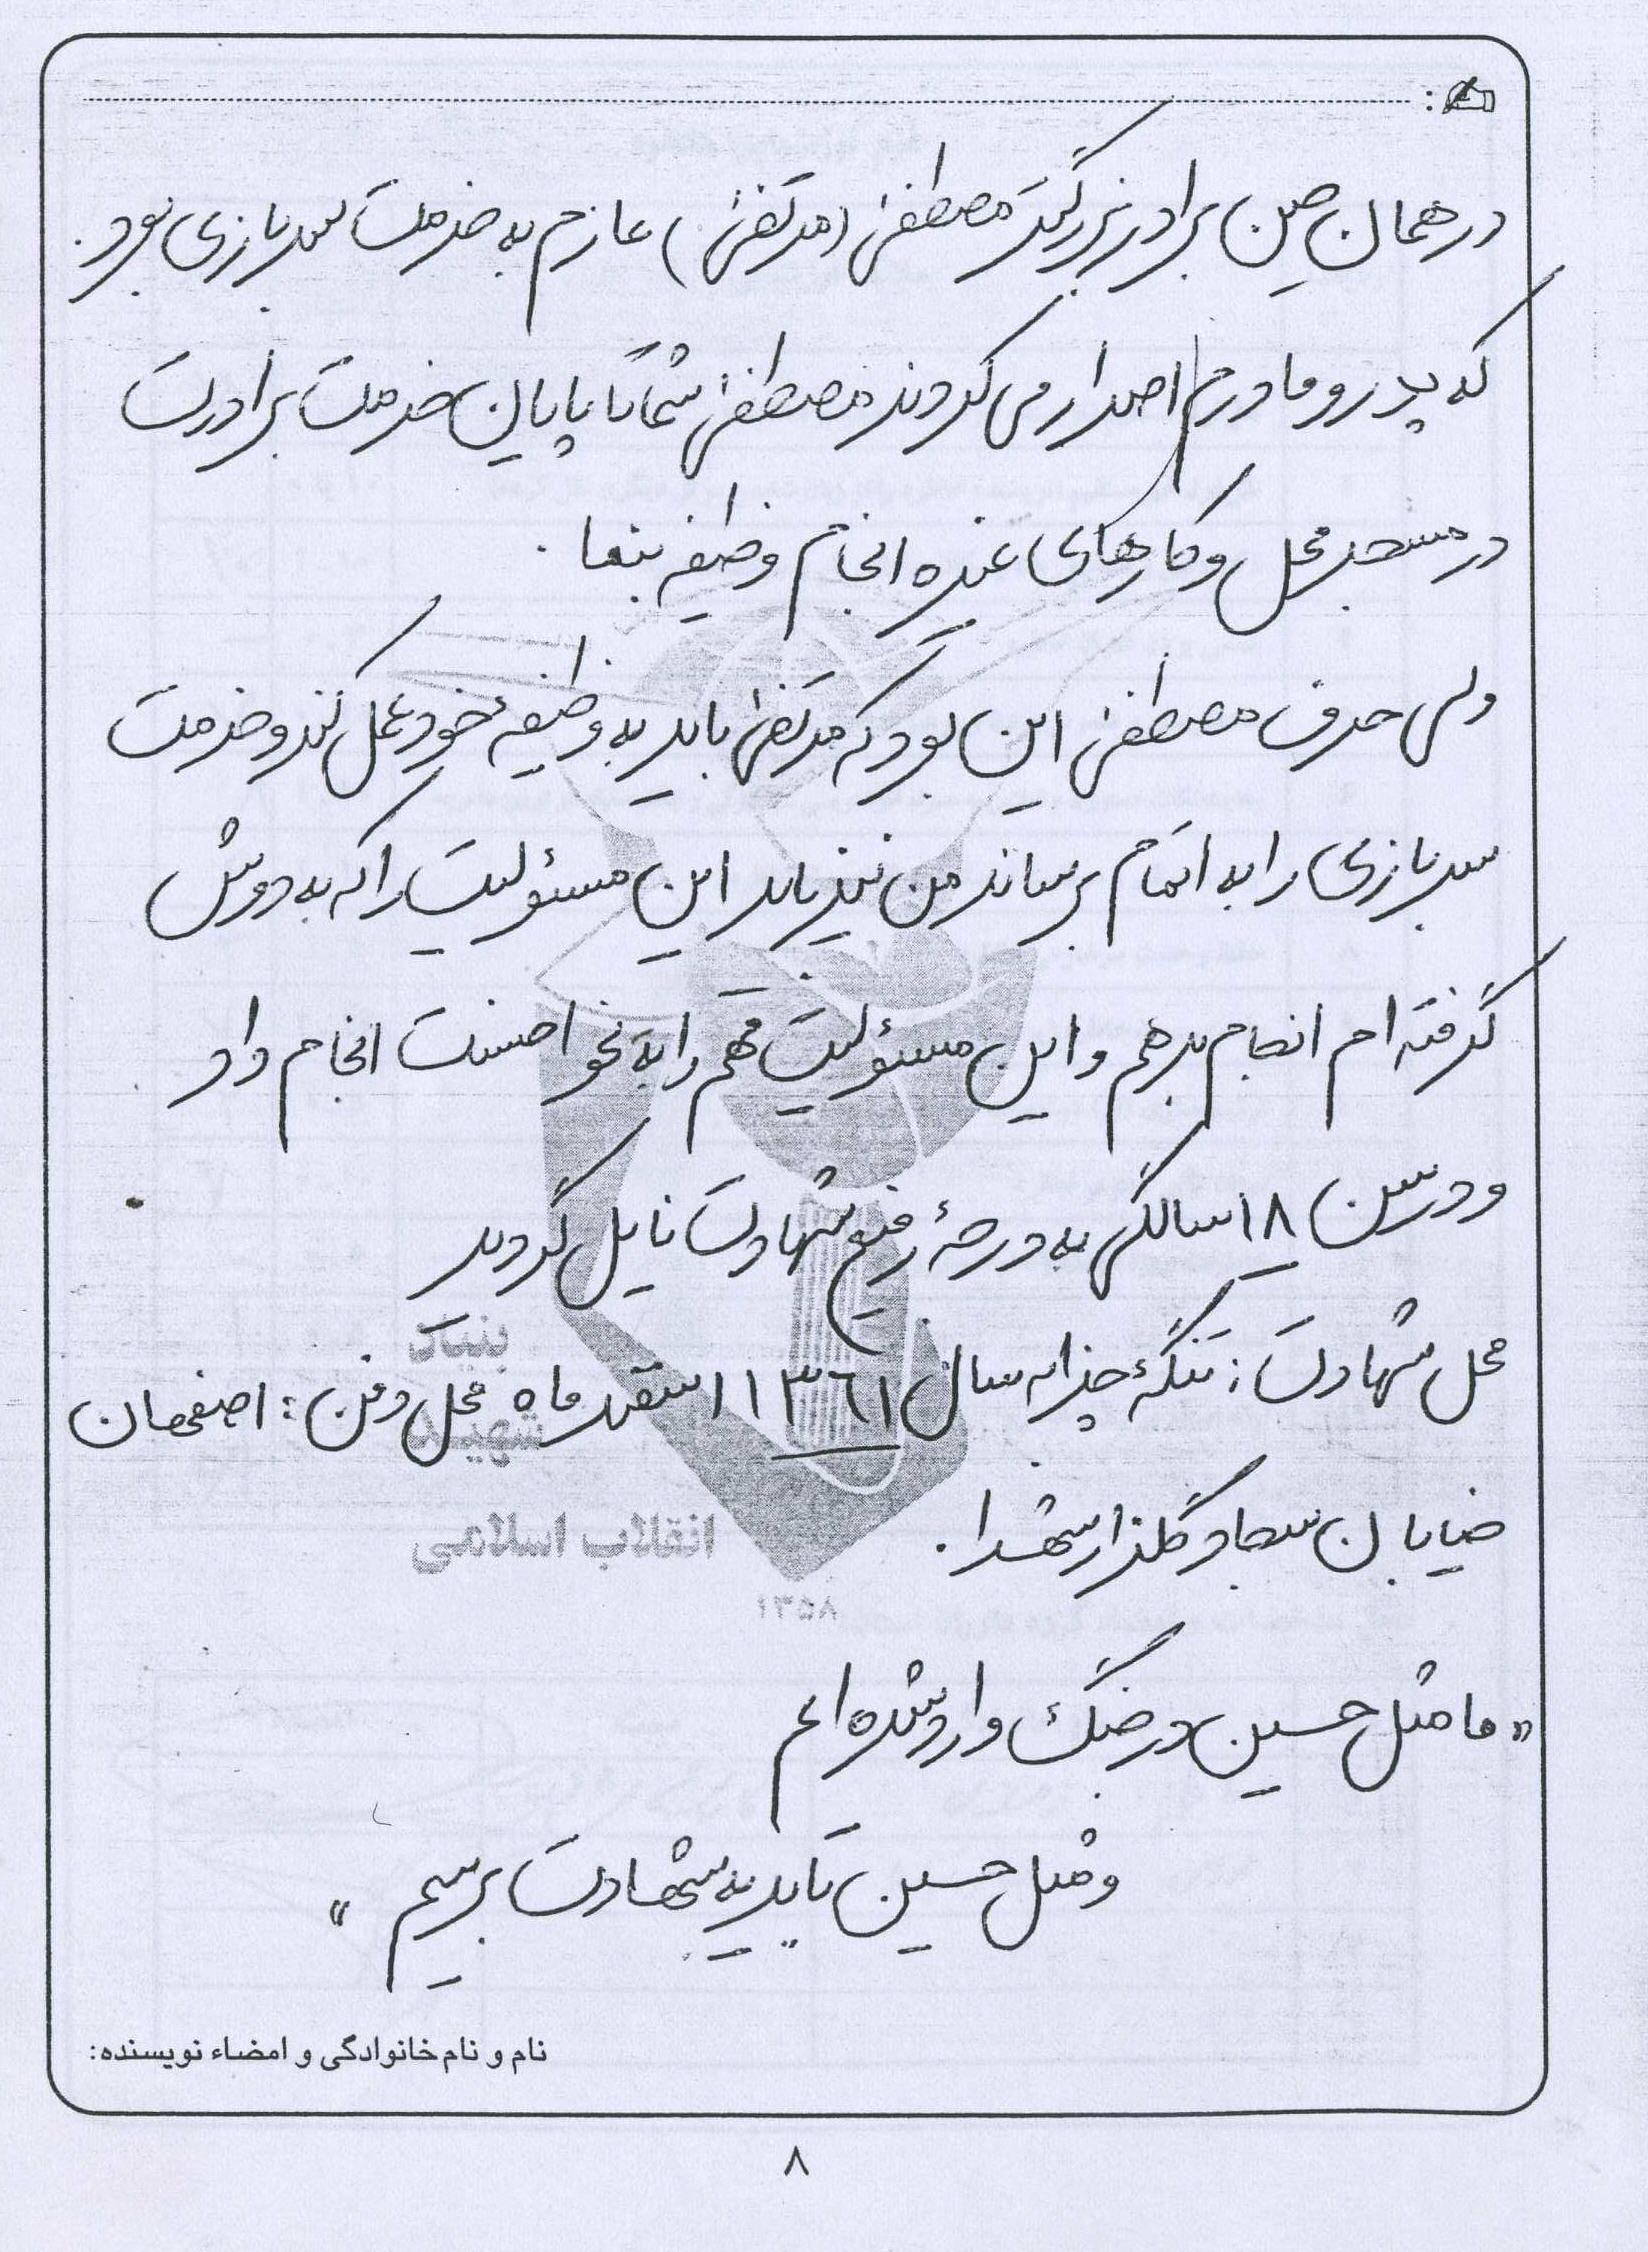 در همان حین برادر بزرگتر مصطفی (مرتضی) عازم به خدمت سربازی بود.
که پدر و مادرم اصرار می کردند مصطفی شما تا پایان خدمت برادرت
در مسجد محل و کارهای غیره انجام وظیفه بنما.
ولی حرف مصطفی این بود که مرتضی باید به وظیفهٔ خود عمل کند و خدمت
سربازی را به اتمام برساند من نیز باید این مسئولیت را که به دوش
گرفته ام انجام بدهم و این مسئولیت مهم را به نحو احسنت انجام داد
و در سن ۱۸ سالگی به درجهٔ رفیع شهادت نایل گردید
محل شهادت: تنگهٔ چزابه سال ۱۳۶۱ اسفند ماه محل دفن: اصفهان
خیابان سجاد گلزار شهدا.
«ما مثل حسین در جنگ وارد شده ایم
و مثل حسین باید به شهادت برسیم»
بنیاد
شهید
انقلاب اسلامی
۱۳۵۸
نام و نام خانوادگی و امضاء نویسنده:
۸